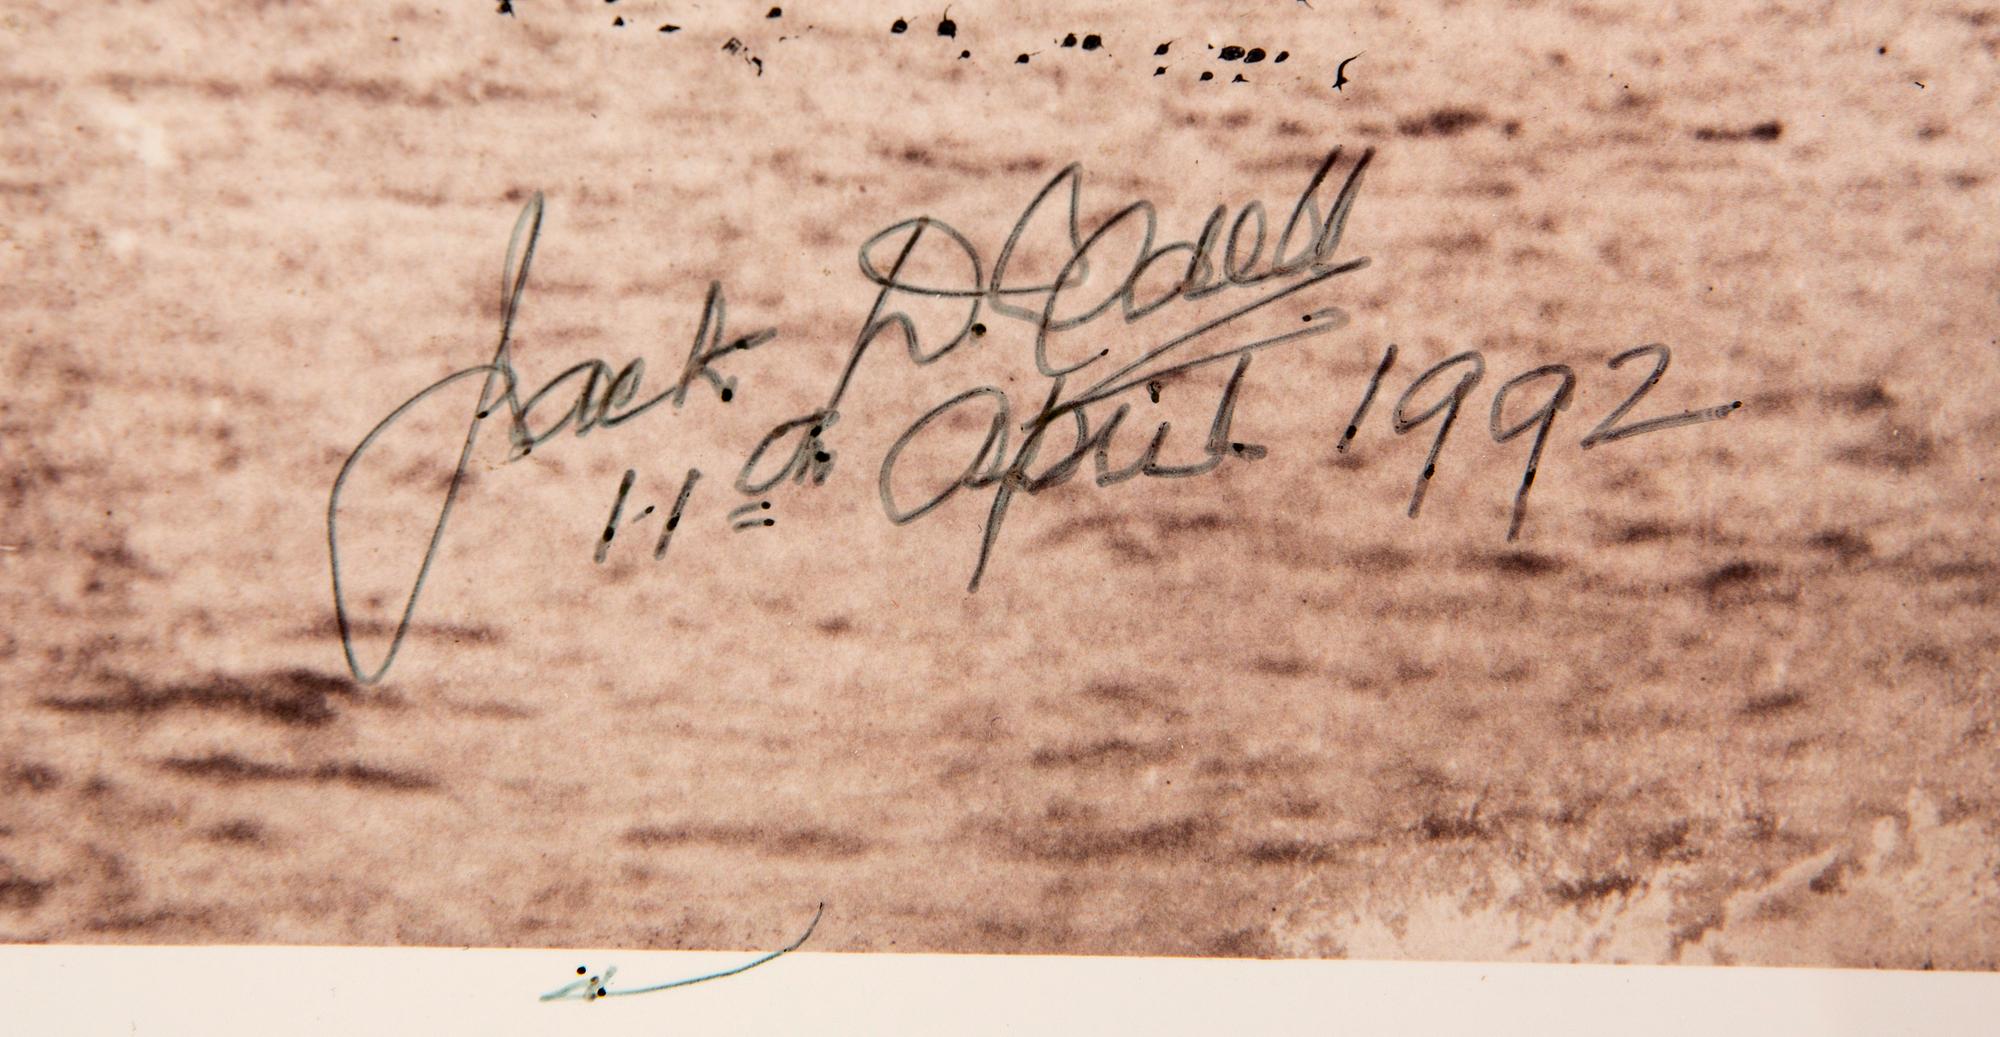 Jack D. Odell
11th April 1992